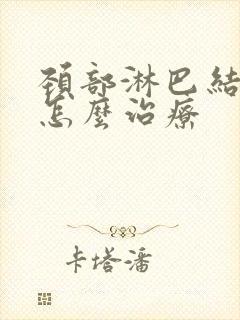 頚部淋巴結
怎麼治療
卡塔潘